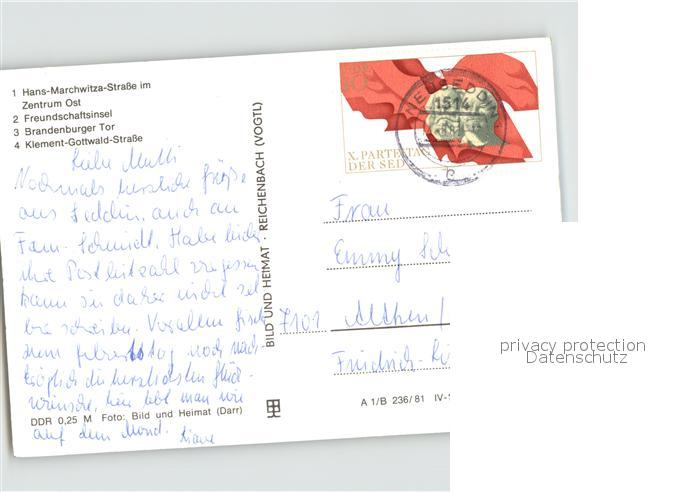 1 Hans-Marchwitza-Straße im
Zentrum Ost
2 Freundschaftsinsel
3 Brandenburger Tor
4 Klement-Gottwald-Straße
Liebe Mutti
Nochmals herzliche Grüße
aus Seddin, auch an
Fam. Schmidt. Habe leider
ihre Postleitzahl vergessen
kann sie daher nicht sel
ber schreiben. Vor allem
zum Geburtstag noch nach
träglich die herzlichsten Glück-
wünsche, hier lebt man wie
auf dem Mond.
DDR 0,25 M Foto: Bild und Heimat (Darr)
BILD UND HEIMAT · REICHENBACH (VOGTL)
DDR
X. PARTEITAG
DER SED
NEUSEDDIN
1514
Frau
Emmy Sch
7101 Althen
Friedrich-
A 1/B 236/81 IV-
privacy protection
Datenschutz